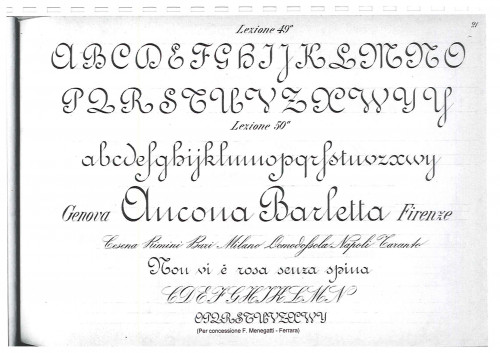 Lezione 49ª
21
A B C D E F G H I J K L M N O
P Q R S T U V Y Z X W Y Y
Lezione 50ª
abcdefghijklmnopqrſstuvzxwy
Genova Ancona Barletta Firenze
Cesena Rimini Bari Milano Domodossola Napoli Taranto
Non vi è rosa senza spina
C D E F G H I K L M N
O P Q R S T U V Z X W Y
(Per concessione F. Menegatti - Ferrara)